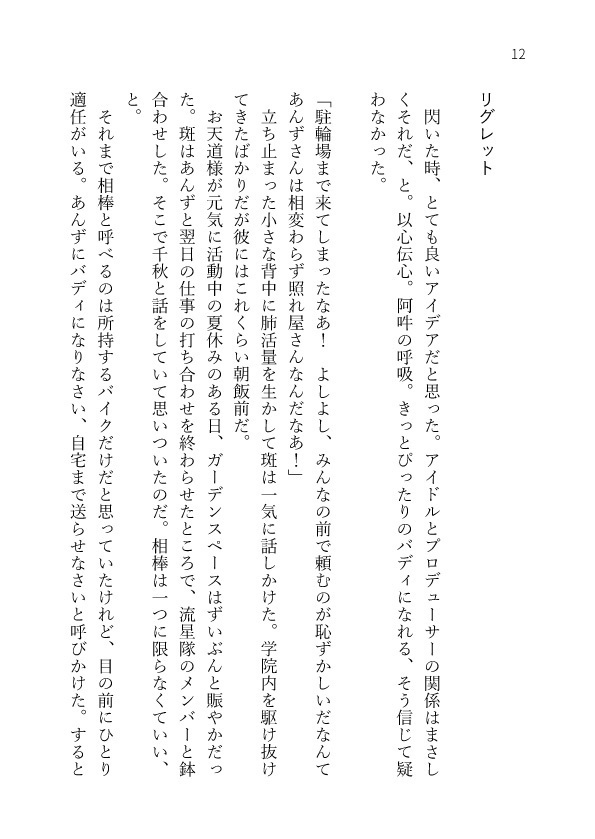 12
リグレット
　閃いた時、とても良いアイデアだと思った。アイドルとプロデューサーの関係はまさし
くそれだ、と。以心伝心。阿吽の呼吸。きっとぴったりのバディになれる、そう信じて疑
わなかった。
「駐輪場まで来てしまったなあ！　よしよし、みんなの前で頼むのが恥ずかしいだなんて
あんずさんは相変わらず照れ屋さんなんだなあ！」
　立ち止まった小さな背中に肺活量を生かして斑は一気に話しかけた。学院内を駆け抜け
てきたばかりだが彼にはこれくらい朝飯前だ。
　お天道様が元気に活動中の夏休みのある日、ガーデンスペースはずいぶんと賑やかだっ
た。斑はあんずと翌日の仕事の打ち合わせを終わらせたところで、流星隊のメンバーと鉢
合わせした。そこで千秋と話をしていて思いついたのだ。相棒は一つに限らなくていい、
と。
　それまで相棒と呼べるのは所持するバイクだけだと思っていたけれど、目の前にひとり
適任がいる。あんずにバディになりなさい、自宅まで送らせなさいと呼びかけた。すると